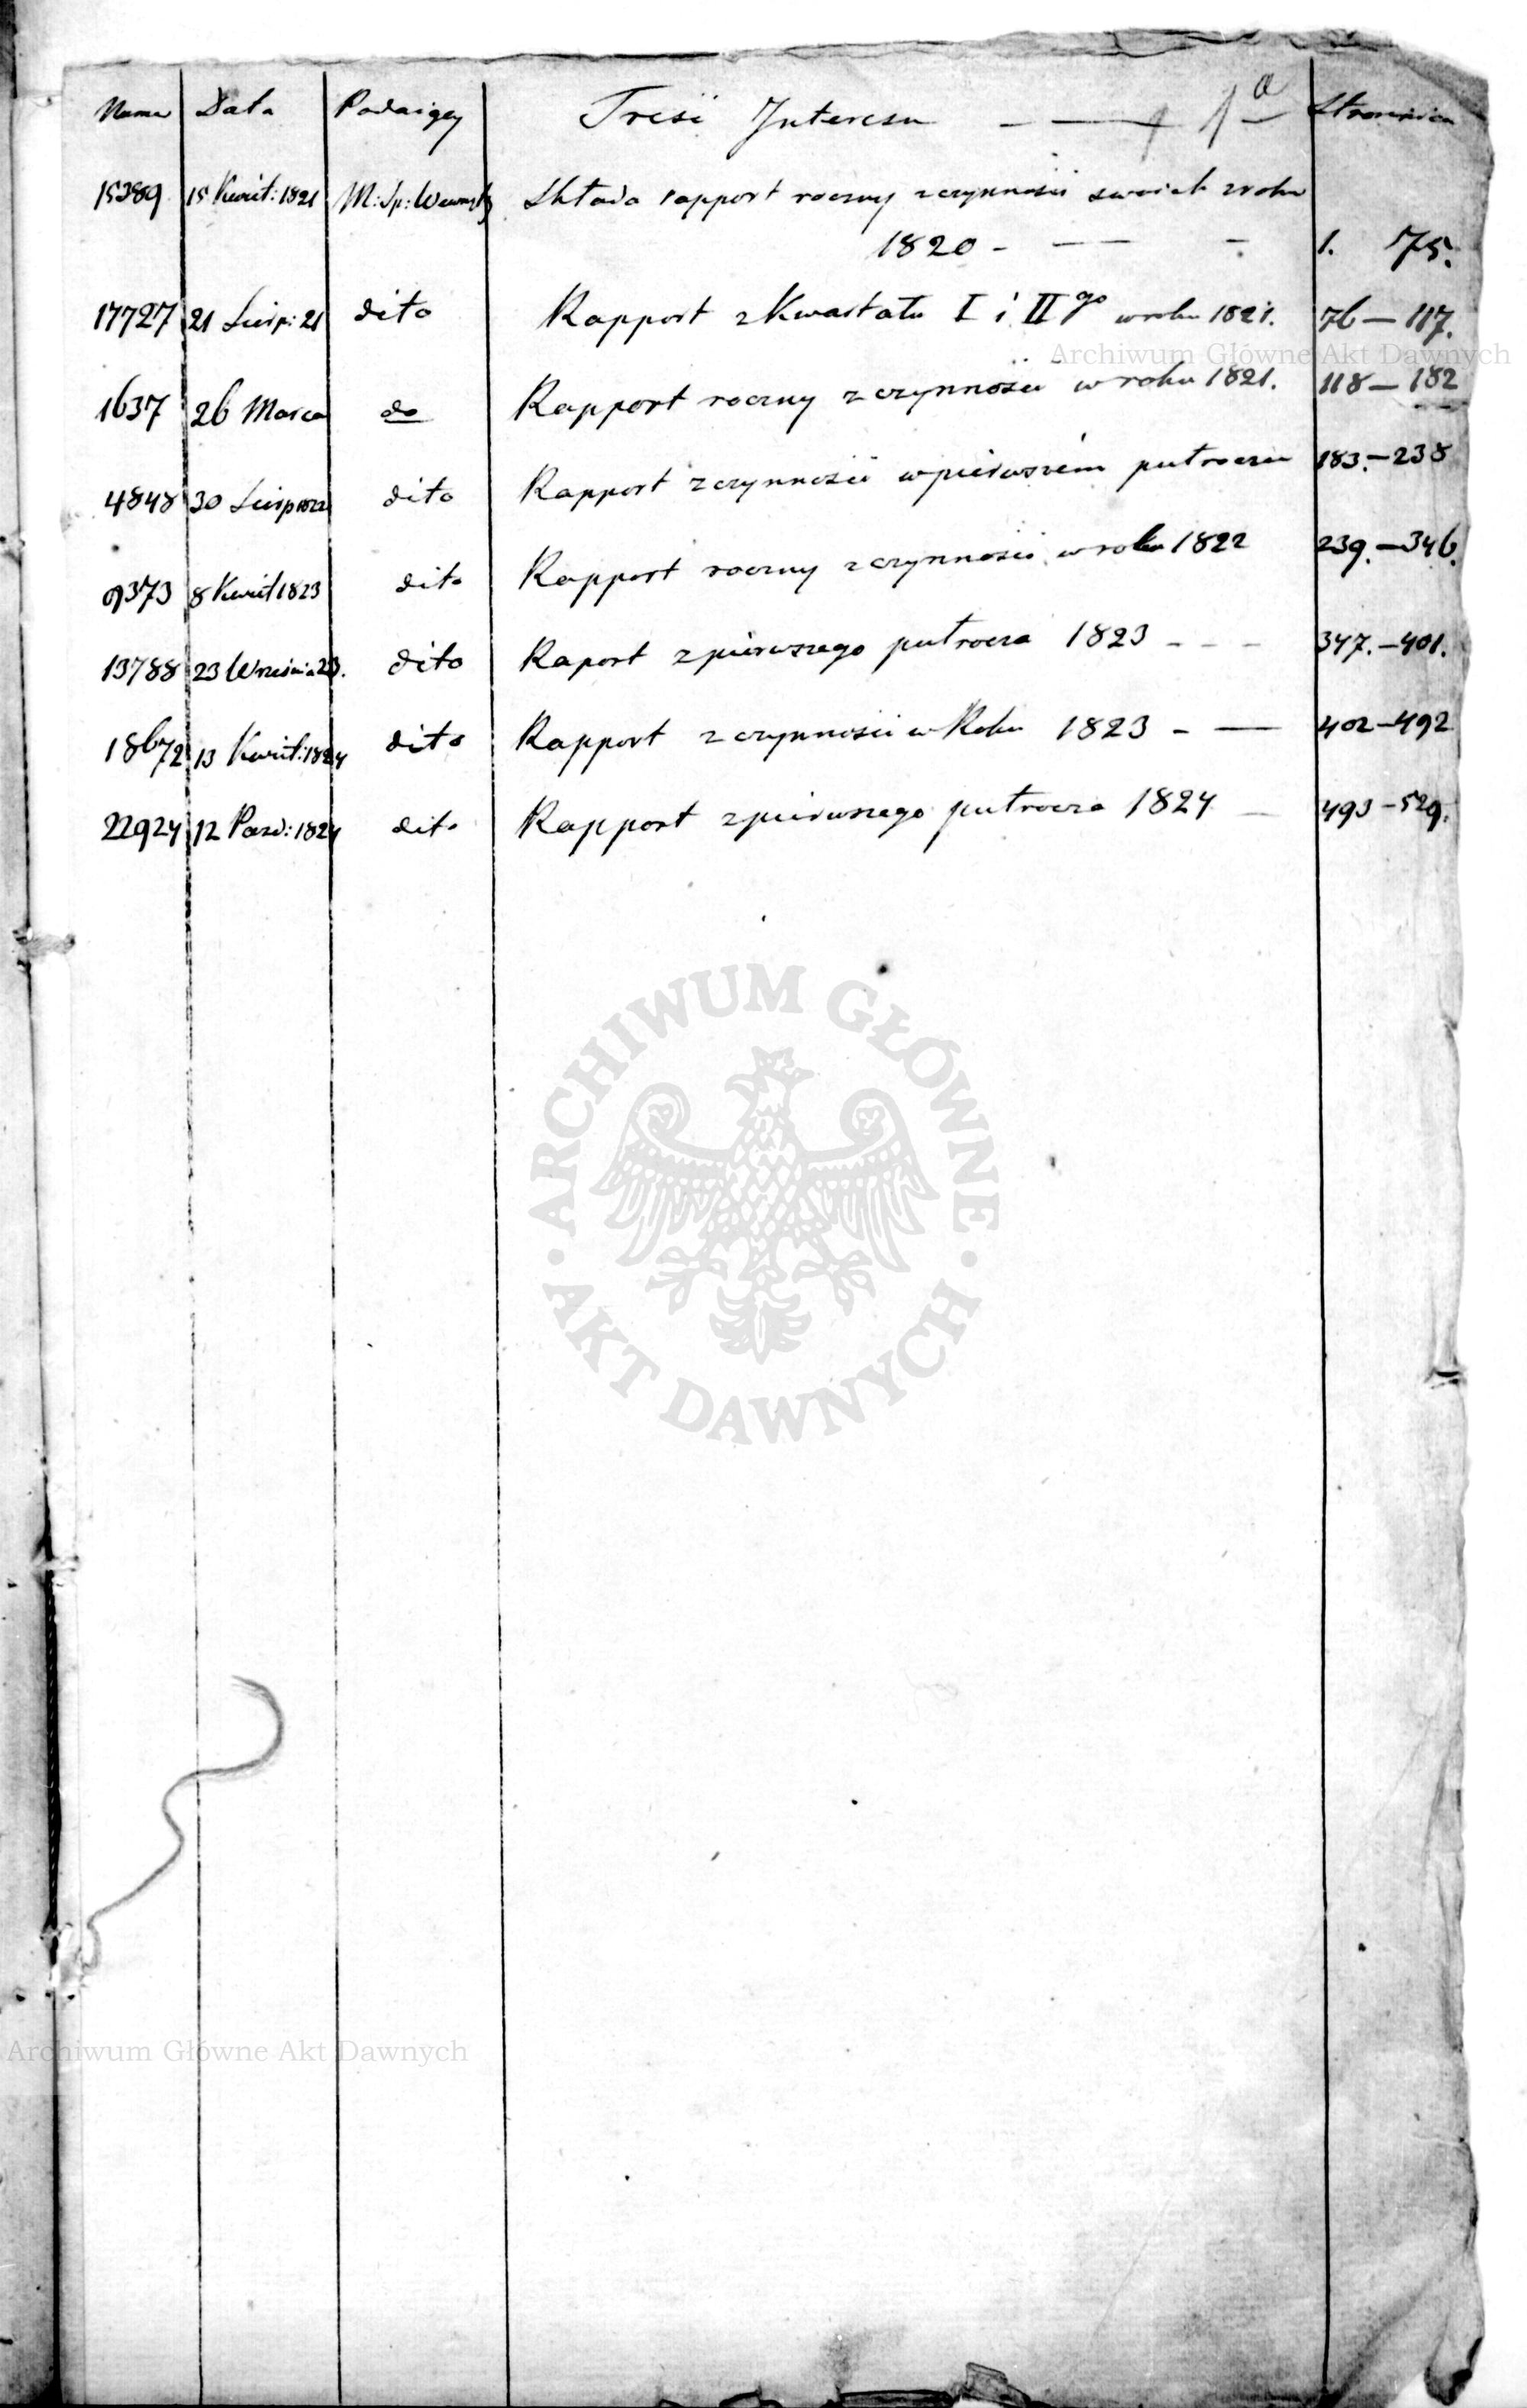 Numer Data Podaiący Treść Interesu Stronnica
15389 15 Kwiet: 1821 M: Sp: Wewnętz Składa rapport roczny z czynności swoich z roku
1820 - 1. 75.
17727 21 Sierp: 21 dito Rapport z Kwartału I i II go w roku 1821. 76 — 117.
Archiwum Główne Akt Dawnych
1637 26 Marca do Rapport roczny z czynności w roku 1821. 118 — 182
4848 30 Sierp 1822 dito Rapport z czynności w pierwszém pułroczu 183. — 238
9373 8 Kwiet 1823 dito Rapport roczny z czynności w roku 1822 239. — 346.
13788 23 Września 23. dito Raport z pierwszego pułrocza 1823 - - - 347. — 401.
18672 13 Kwiet: 1824 dito Rapport z czynności w Roku 1823 - — 402 — 492
22924 12 Pazd: 1824 dito Rapport z pierwszego pułrocza 1824 — 493 - 529.
ARCHIWUM GŁÓWNE
· AKT DAWNYCH ·
Archiwum Główne Akt Dawnych